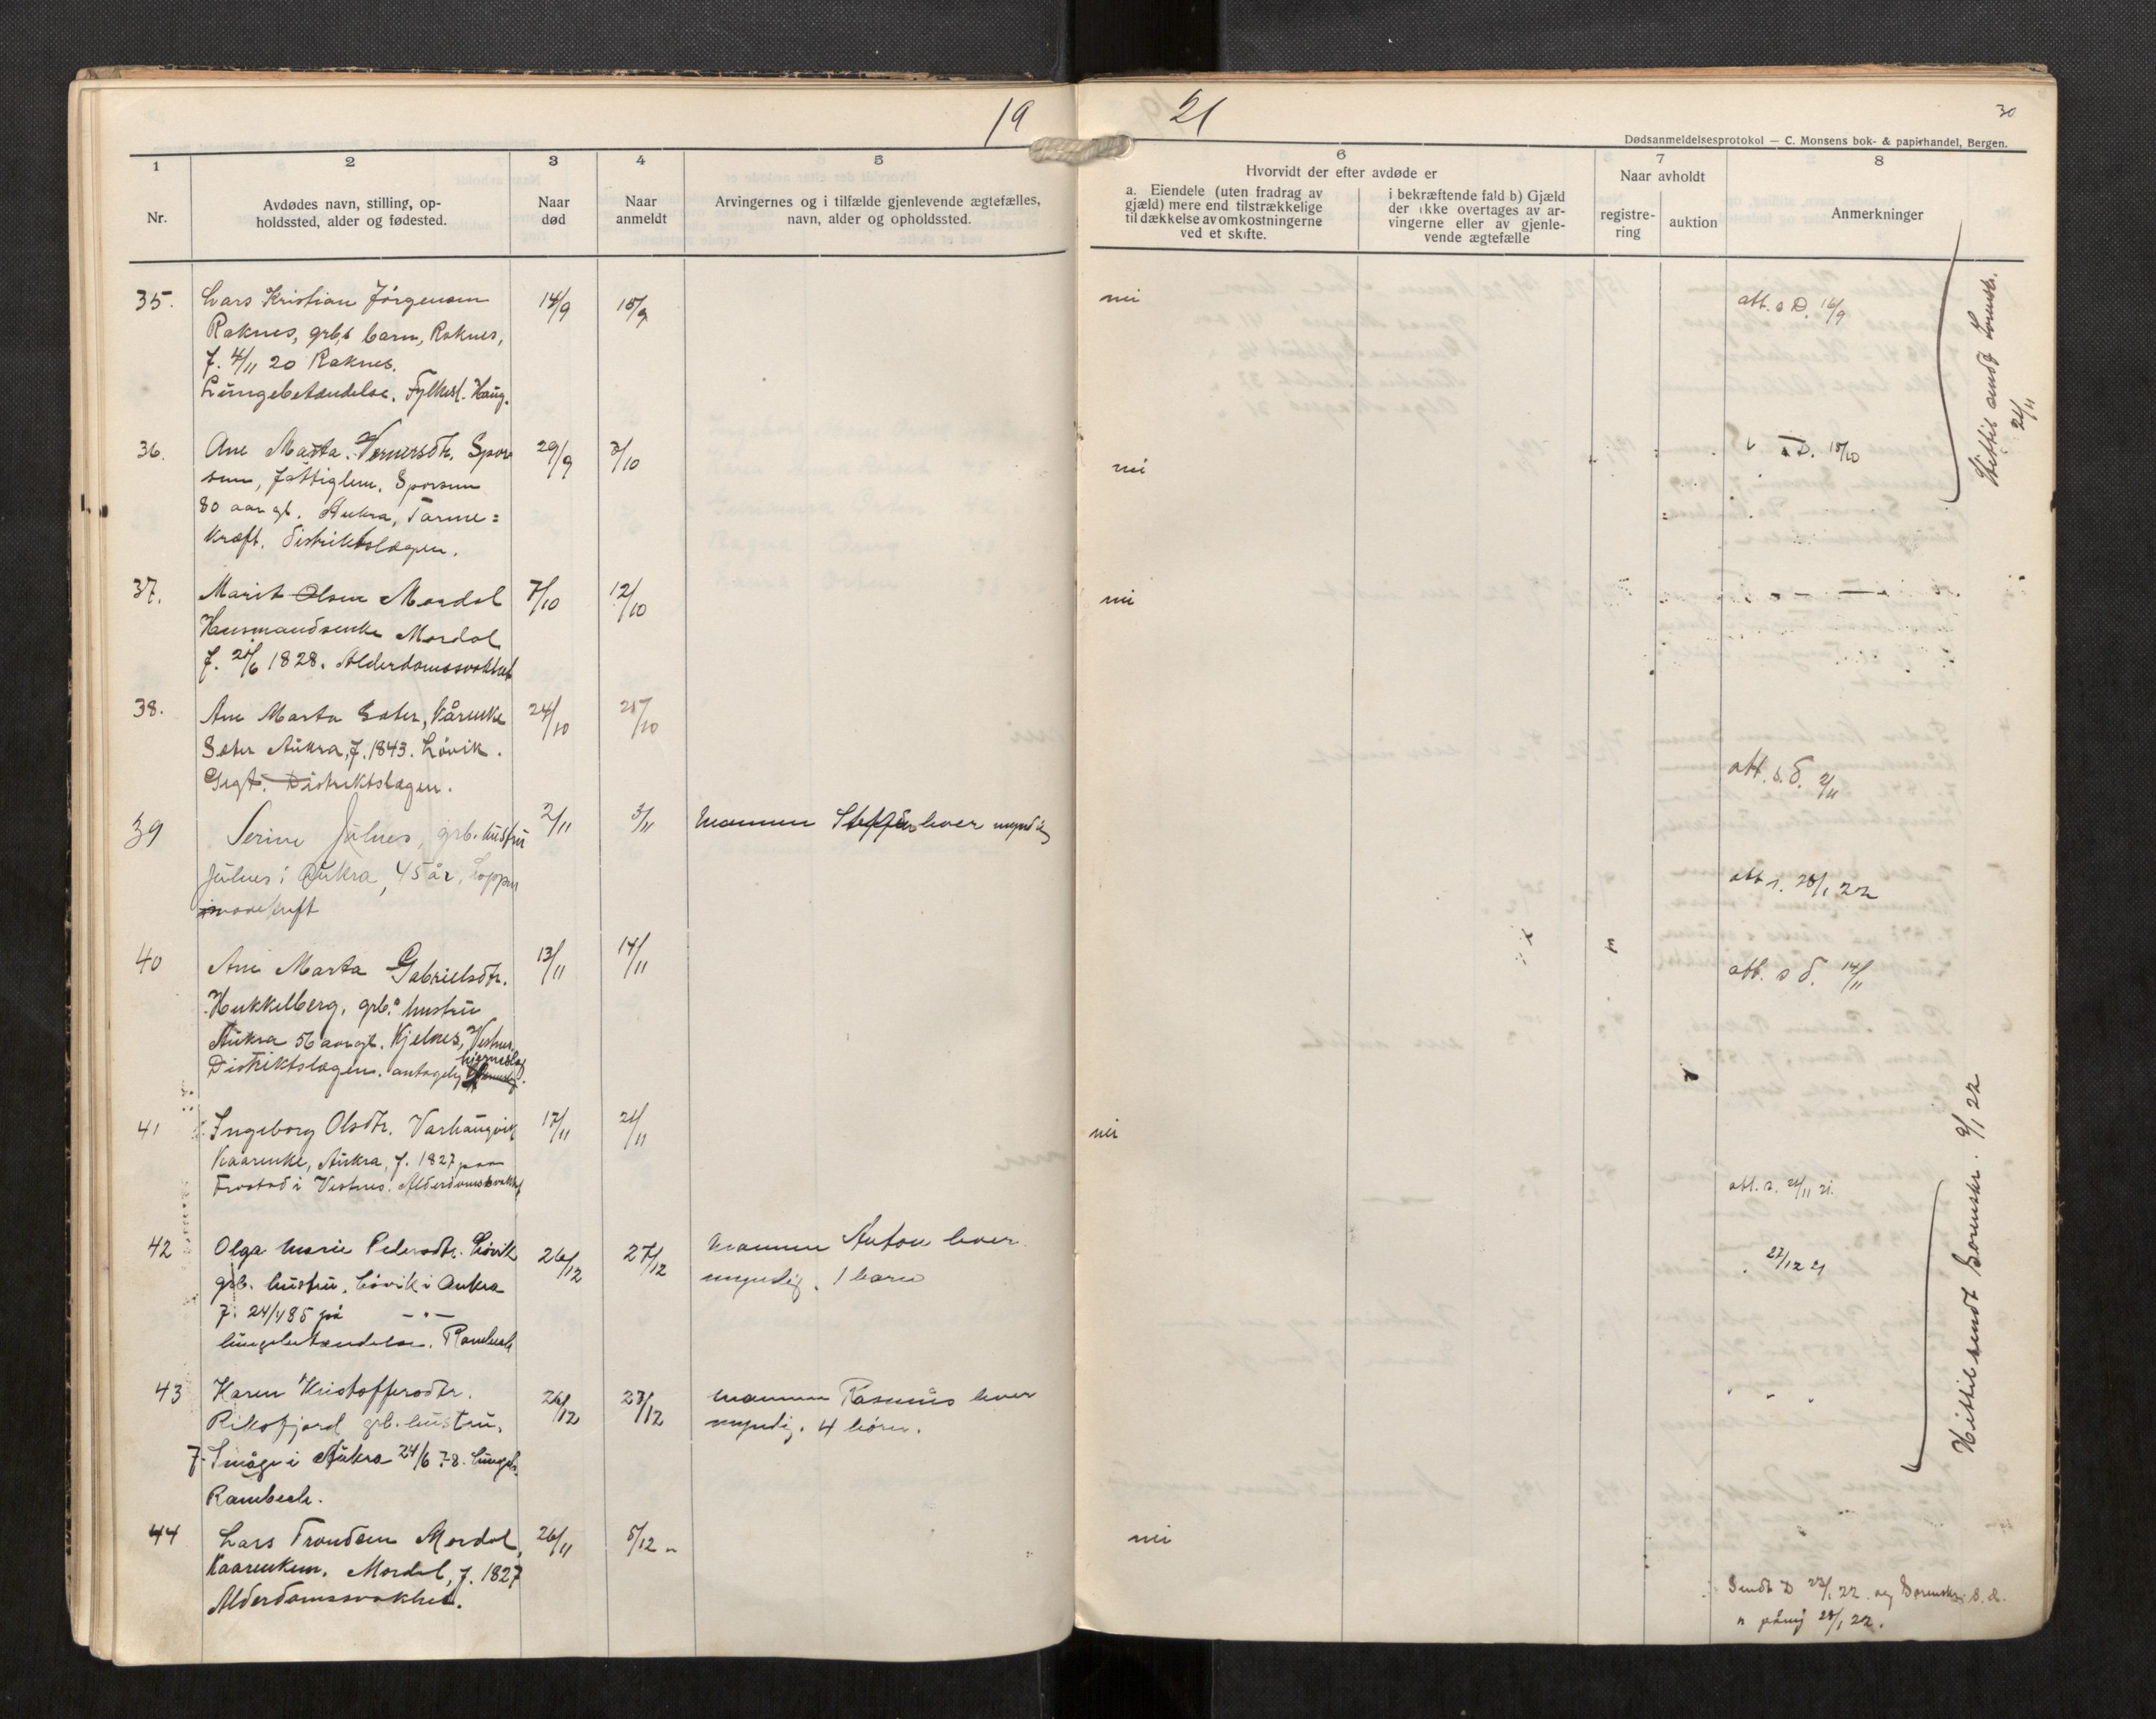 19 21
30
Dødsanmeldelsesprotokol — C. Monsens bok- & papirhandel, Bergen.
1 2 3 4 5 6 7 8
Nr.
Avdødes navn, stilling, op-
holdssted, alder og fødested.
Naar
død
Naar
anmeldt
Arvingernes og i tilfælde gjenlevende ægtefælles,
navn, alder og opholdssted.
Hvorvidt der efter avdøde er
a. Eiendele (uten fradrag av
gjæld) mere end tilstrækkelige
til dækkelse av omkostningerne
ved et skifte.
i bekræftende fald b) Gjæld
der ikke overtages av ar-
vingerne eller av gjenle-
vende ægtefælle
Naar avholdt
registre-
ring
auktion
Anmerkninger
35. Lars Kristian Jörgensen 14/9 15/9 nei att. s D. 16/9
Raknes, grb,s barn, Raknes,
f. 4/11 20 Raknes.
Lungebetændelse. Fylkesl. Haug.
36. Ane Marta Vernersdtr. Spor 29/9 3/10 nei D. 15/10
sem, fattiglem. Sporsem
80 aar gl. Aukra, Tarme=
kræft. Distriktslægen.
37. Marit Olsen Mordal 7/10 12/10 nei
Husmandsenke Mordal
f. 25/6 1828. Alderdomssvakhet
38. Ane Marta Sæter, kårenke 24/10 25/10
Sæter Aukra, f. 1843. Lövik.
Gigt. Distriktslægen. att. s. d. 2/11
39 Serine Julnes, grb. hustru 2/11 3/11 Mannen Steffen lever myndig
Julnes i Aukra, 45 år,
att s. 28/1 22
40 Ane Marta Gabrielsdtr. 13/11 14/11 att. s d. 14/11
Hukkelberg, grb.s hustru
Aukra 56 aar gl. Kjelnes, Vestnes
Distriktslægen. antagelig hjerneslag.
41 Ingeborg Olsdtr. Varhaugvik 17/11 21/11 nei
Kaarenke, Aukra, f. 1827 paa
Frostad i Vestnes. Alderdomssvakhet
att. s. 21/11 21.
42 Olga Marie Pedersdtr. Lövik 26/12 27/12 Mannen Anton lever
grb. hustru, Lövik i Aukra myndig. 1 barn 27/12 21
f. 24/4 85 på — " —
lungebetændelse. Rambech
43 Karen Kristoffersdtr. 26/12 27/12 Mannen Rasmus lever " " "
Rikofjord grb. hustru. myndig. 4 börn.
f. Småge i Aukra 24/6 78. Lungeb.
Rambech.
44 Lars Trondsen Mordal, 26/11 5/12 nei
Kaarenkem. Mordal, f. 1827
Alderdomssvakhet.
Sendt D 23/1 22. og Sorenskr. s. d.
n påny 28/1 22.
Hittil sendt Sorenskr.
24/11
Hittil sendt Sorenskr. 2/1 22